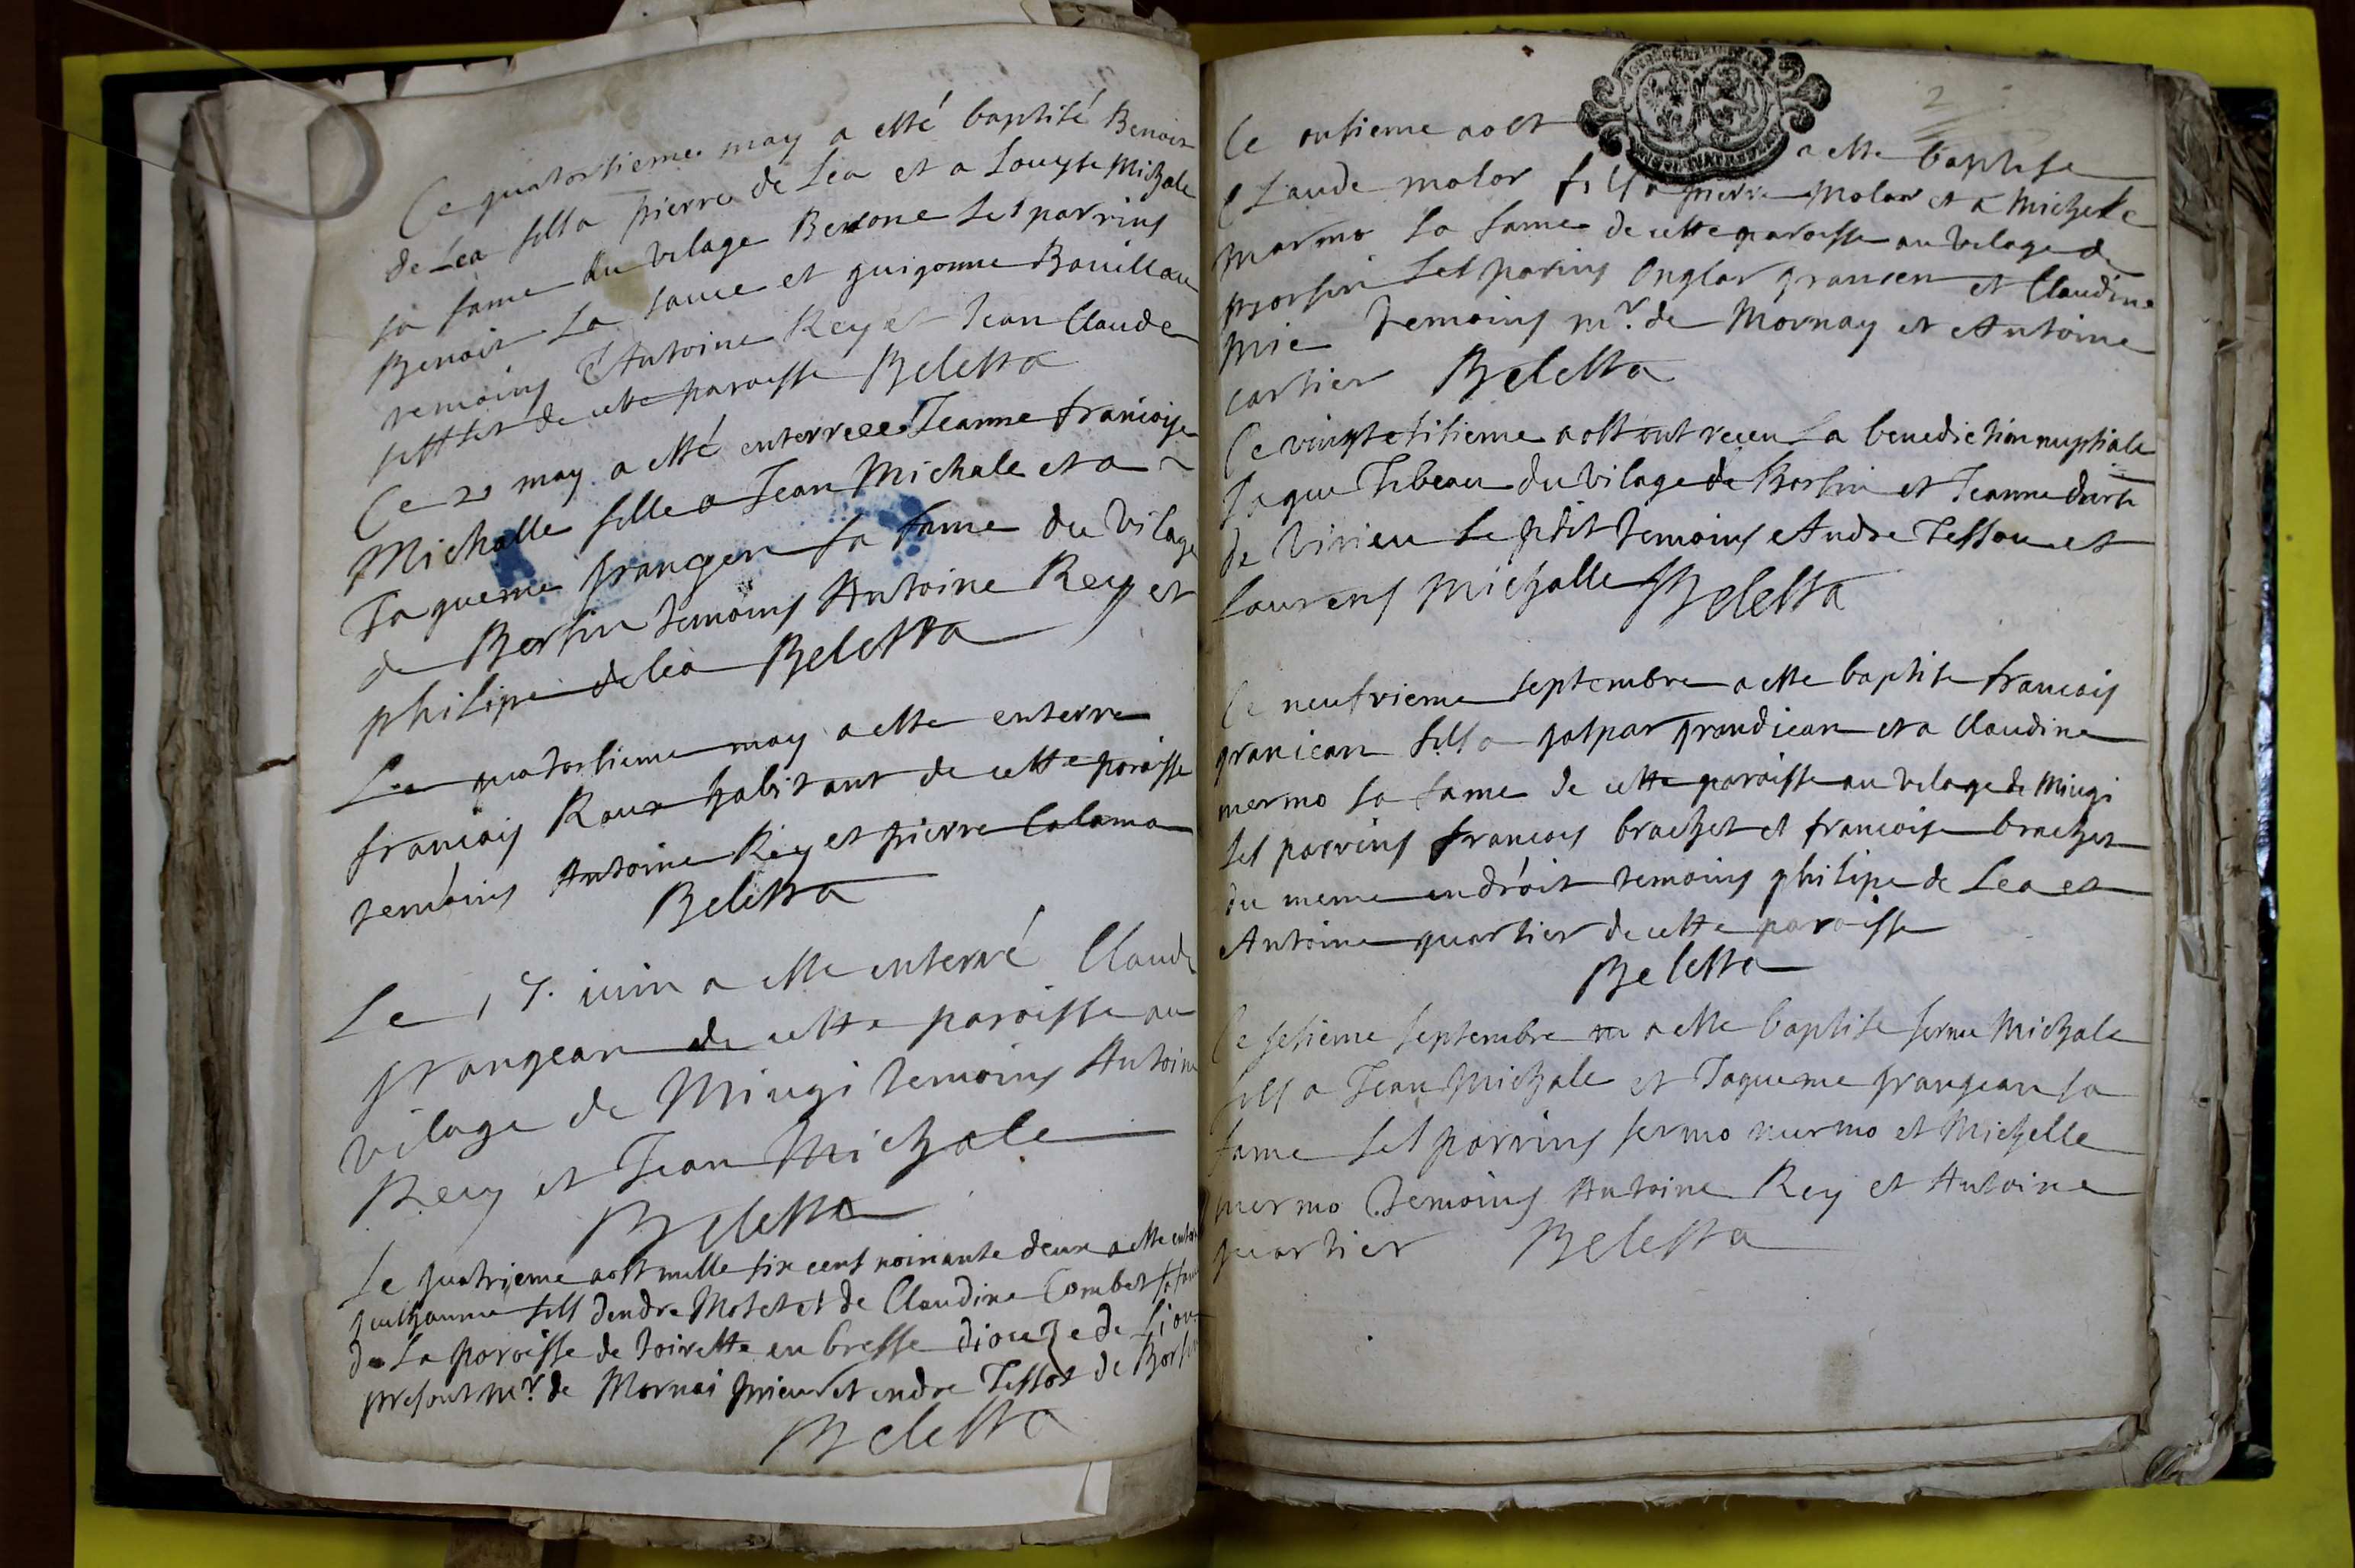 Ce quatorsieme may a esté baptisé Benoit
de Lea fills a pierre de Lea et a Louyse Michale
sa fame du vilage Berrone ses parrins
Benoit La sauce et guigonne Bouillau
temoins Antoine Rey et Jean Claude
de cete paroesse Beletta
Ce 20 may a esté enterreee Jeanne francoise
Michalle fille a Jean Michale et a
Jaqueme grangen sa fame du vilage
de Borsin temoins Antoine Rey et
philipe de lea Beletta
Le quatorsieme may a este enterre
francois Roux habitant de cette paroisse
temoins Antoine Rey et pierre Calama
Beletta
Le 17. iuin a este enterré Claude
grangean de cette paroisse au
vilage de Miugi temoins Antoine
Rey et Jean Michale
Beletta
Le quatrieme aost mille six cent noinante deux a este
guilhaume fils dendre Motet et de Claudine Combet sa
de La paroisse de toirette en bresse dioceze de Lion
presant Mr. de Mornai prieur et endre Tessot de Borsin
Beletta
Ce onsieme aost a este baptise
Claude molar fills a pierre molar et a Michelle
marmo sa fame de cette paroisse au vilage de
borsin ses parins Onglar gransen et Claudine
mie temoins mr. de Mornay et Antoine
cartier Beletta
Ce vingtetisieme aost ont receu La benediction nuptiale
Jaque Tibeau du vilage de Borsin et Jeanne
de Virieu Le ptit temoins Andre Tessou et
Laurens Michalle Beletta
Ce neufvieme septembre a este baptise francois
granican fills a gaspar grandican et a Claudine
mermo sa fame de cette paroisse au vilage de Miugi
ses parrins francois brachet et francoise brachet
du meme endroit temoins philipe de Lea et
Antoine quartier de cette paroisse
Beletta
Ce sesieme septembre a este baptise Michale
fills a Jean Michale et Jaqueme grangean sa
fame ses parrins sermo mermo et Michelle
mermo temoins Antoine Rey et Antoine
quartier Beletta